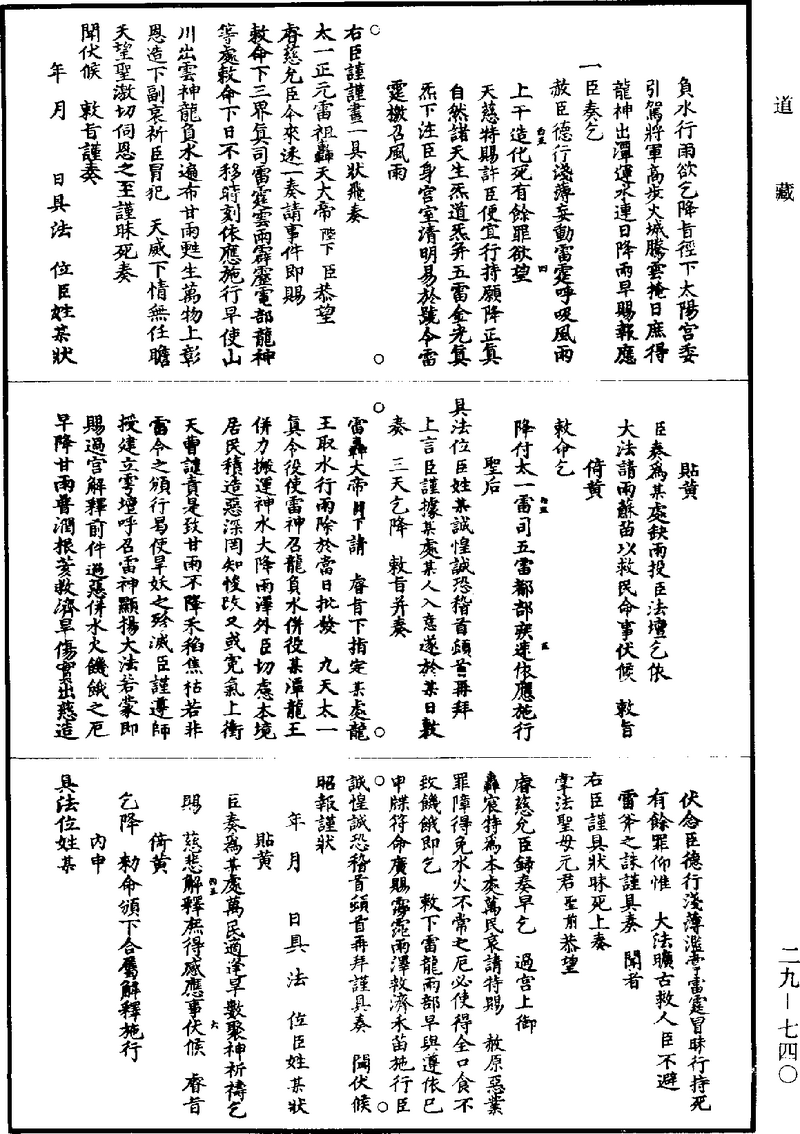 道藏
二九—七四〇
負水行雨欲乞降旨徑下太陽宮委
引駕將軍高步火城騰雲掩日庶得
龍神出潭運水連日降雨早賜報應
一臣奏乞
赦臣德行淺薄妄動雷霆呼吸風雨
上干造化死有餘罪欲望
天慈特賜許臣便宜行持願降正真
自然諸天生炁道炁并五雷金光真
炁下注臣身宮室清明易於號令雷
霆檄召風雨
右臣謹謹畫一具狀飛奏
太一正元雷祖轟天大帝陛下臣恭望
睿慈允臣今來逐一奏請事件即賜
敕命下三界真司雷霆雲雨霹靂電部龍神
等處敕命下日不移時刻依應施行早使山
川出雲神龍負水遍布甘雨甦生萬物上彰
恩造下副哀祈臣冒犯 天威下情無任瞻
天望聖激切伺恩之至謹昧死奏
聞伏候 敕旨謹奏
年 月 日具法 位臣姓某狀
貼黃
臣奏為某處缺雨投臣法壇乞依
大法請雨蘇苗以救民命事伏候 敕旨
倚黃
敕命乞
降付太一雷司五雷都部疾速依應施行
聖后
具法位臣姓某誠惶誠恐稽首頓首再拜
上言臣謹據某處某人入意遂於某日敷
奏 三天乞降 敕旨并奏
雷轟大帝 下請 睿旨下指定某處龍
王取水行雨除於當日批發 九天太一
真令役使雷神召龍負水併役某潭龍王
併力搬運神水大降雨澤外臣切慮本境
居民積造惡深罔知悛改又或冤氣上衝
天曹譴責是致甘雨不降禾稻焦枯若非
雷令之頒行曷使旱妖之殄滅臣謹遵師
授建立雩壇呼召雷神顯揚大法若蒙即
賜過宮解釋前件過惡併水火饑餓之厄
早降甘雨普潤根荄救濟旱傷實出慈造
伏念臣德行淺薄濫霑雷霆冒昧行持死
有餘罪仰惟 大法曠古救人臣不避
雷斧之誅謹具奏 聞者
右臣謹具狀昧死上奏
掌法聖母元君聖前恭望
睿慈允臣錄奏早乞 過宮上御
轟宸特為本處萬民哀請特賜 赦原惡業
罪障得免水火不常之厄必使得全口食不
致饑餓即乞 敕下雷龍雨部早與遵依已
申牒符命廣賜霶霈雨澤救濟禾苗施行臣
誠惶誠恐稽首頓首再拜謹具奏 聞伏候
昭報謹狀
年 月 日具法 位臣姓某狀
貼黃
臣奏為某處萬民適逢旱數聚神祈禱乞
賜 慈悲解釋庶得感應事伏候 睿旨
倚黃
乞降 勑命頒下合屬解釋施行
內申
具法位姓某